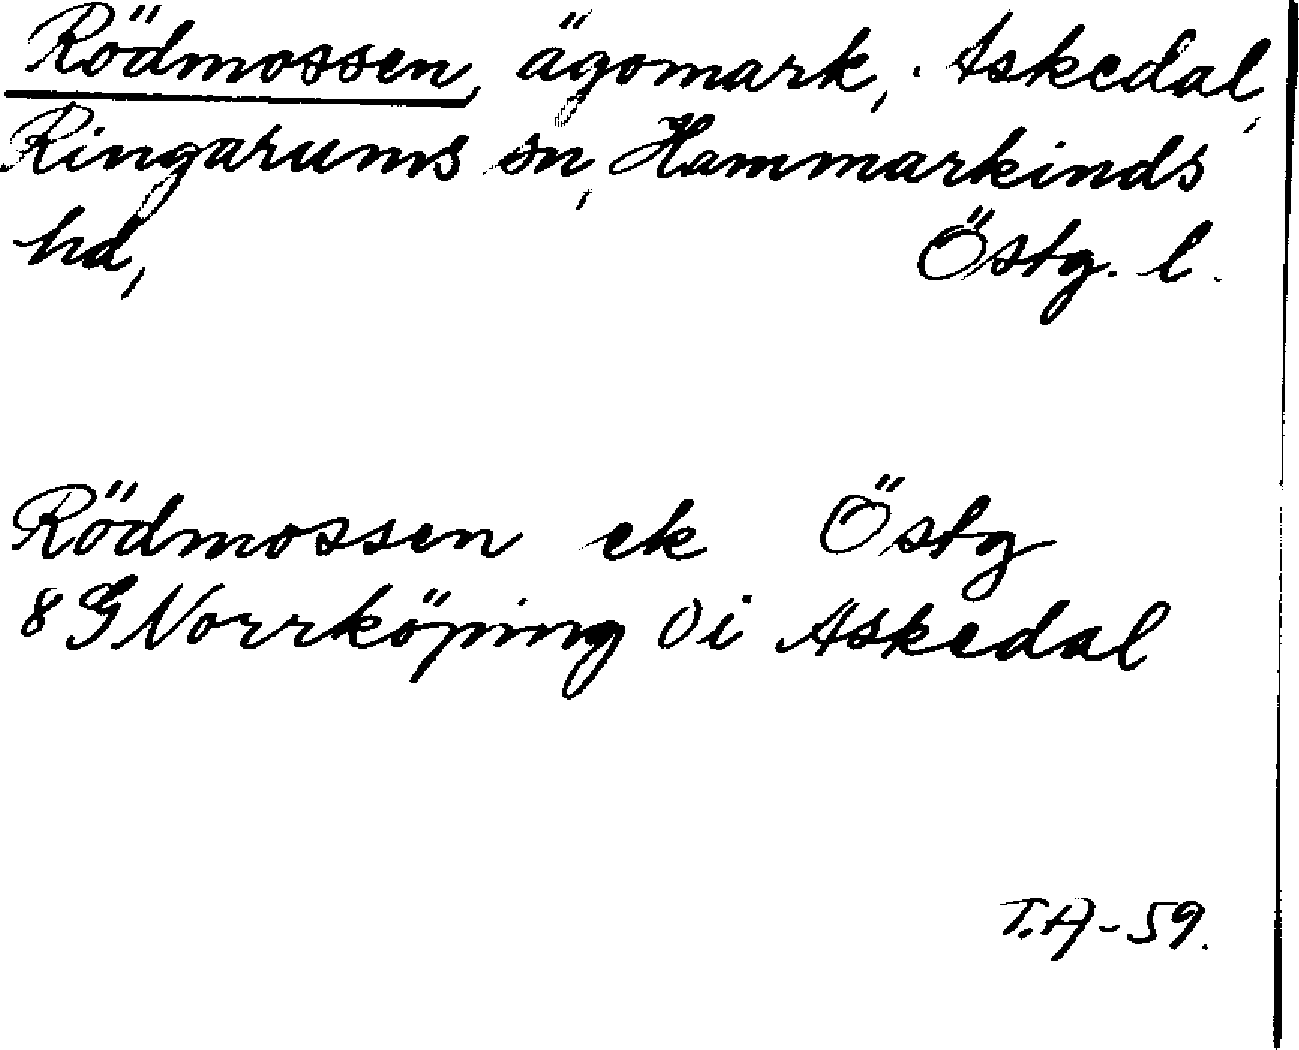 Rödmossen, ägomark, Askedal,
Ringarums sn, Hammarkinds
hd, Östg. l.
Rödmossen ek Östg
8 G Norrköping 0 i Askedal
T.A-59.